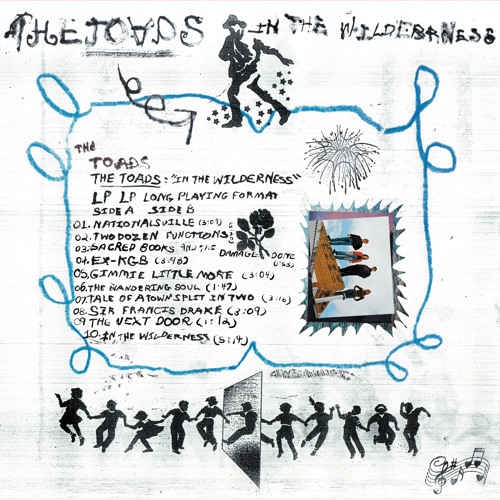 THE TOADS IN THE WILDERNESS
THE
TOADS
THE TOADS: "IN THE WILDERNESS"
LP LP LONG PLAYING FORMAT
SIDE A SIDE B
01. NATIONALSVILLE
02. TWO DOZEN FUNCTIONS
03. SACRED BOOKS AND THE DAMAGE DONE
04. EX-KGB (3:48)
05. GIMMIE LITTLE MORE (3:04)
06. THE WANDERING SOUL (1:47)
07. TALE OF A TOWN SPLIT IN TWO (3:16)
08. SIR FRANCIS DRAKE (3:09)
09. THE NEXT DOOR (1:12)
10. IN THE WILDERNESS (5:14)